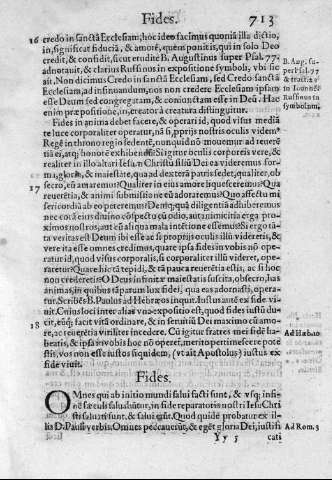 Fides. 713
16 credo in sanctā Ecclesiam, hoc ideo facimus quoniā illa dictio,
in, significat fiduciā, & amorē, quem ponit is, qui in solo Deo
credit, & confidit, sicut erudite B. Augustinus super Psal. 77.
adnotauit, & clarius Ruffinus in expositione symboli, vbi sic
ait. Non dicimus Credo in sanctā Ecclesiam, sed Credo sanctā
Ecclesiam, ad insinuandum, nos non credere Ecclesiam ipsam
esse Deum sed congregatam, & coniunctam esse in Deū. Hac
enim præpositione, in, creator à creatura distinguitur.
B. Aug. su
per Psal. 77
& tracta. 2
in Ioannē
Ruffinus in
symbolum.
Fides in anima debet facere, & operari id, quod visus mediā
te luce corporali operatur, nā si, pprijs nostris oculis videm⁹
Regē in throno regio sedentē, nunquid nō mouemur ad reuerē
tiā ei, atq; honorē exhibendū? Si igitur oculis corporeis vere, &
realiter in illo altari Iesum Christū illiū Dei ea videremus for
ma, gloria, & maiestate, qua ad dexterā patris sedet, qualiter, ob
secro, eū amaremus? Qualiter in eius amore liquesceremus? Qua
17 reuerētia, & animi submissione eū adoraremus? Quo affectu mi
sericordiā ab eo peteremus? Deniq; quā diligentiā adhiberemus
nec corā eius diuino cōspectu cū odio, aut inimicitia erga pro
ximos nostros, aut cū aliqua mala intētione essemus? Si ergo tā
ta veritas est Deum ibi esse ac si proprijs oculis illū videretis, &
vere ita esse omnes credimus, quare ipsa fides in vobis nō operatur
id, quod visus corporalis, si corporaliter illū videret, ope-
raretur? Quare hic tā tepidi, & tā pauca reuerētia estis, ac si hoc
non crederetis? O Deus infinitæ maiestatis suscita, obsecro, has
animas, in quibus tā parum lux fidei, qua eas adornasti, opera-
tur. Scribēs B. Paulus ad Hebræos inquit. Iustus autē ex fide
viuit. Cuius loci inter alias vna expositio est, quod fides iustū du-
18 cit, eūq; facit vitā ordinare, & in seruitiū Dei maximo cū amo-
re, ac reuerētia viriliter incedere. Cū igitur fratres mei fidē ha-
beatis, & ipsa in vobis hoc nō operet, merito pertimescere pote
stis, vos non esse iustos siquidem, (vt ait Apostolus) iustus ex
fide viuit.
Ad Hab. 10
Fides.
OMnes qui ab initio mundi salui facti sunt, & vsq; in fi-
nē sæculi saluābūtur, in fide reparatoris nostri Iesu Chri
sti saluati sunt, & salui erūt. Quod quidē probatur ex il-
lis D. Pauli verbis. Omnes peccauerūt, & egēt gloria Dei, iustifi
Ad Rom. 3
Yy 5 cati